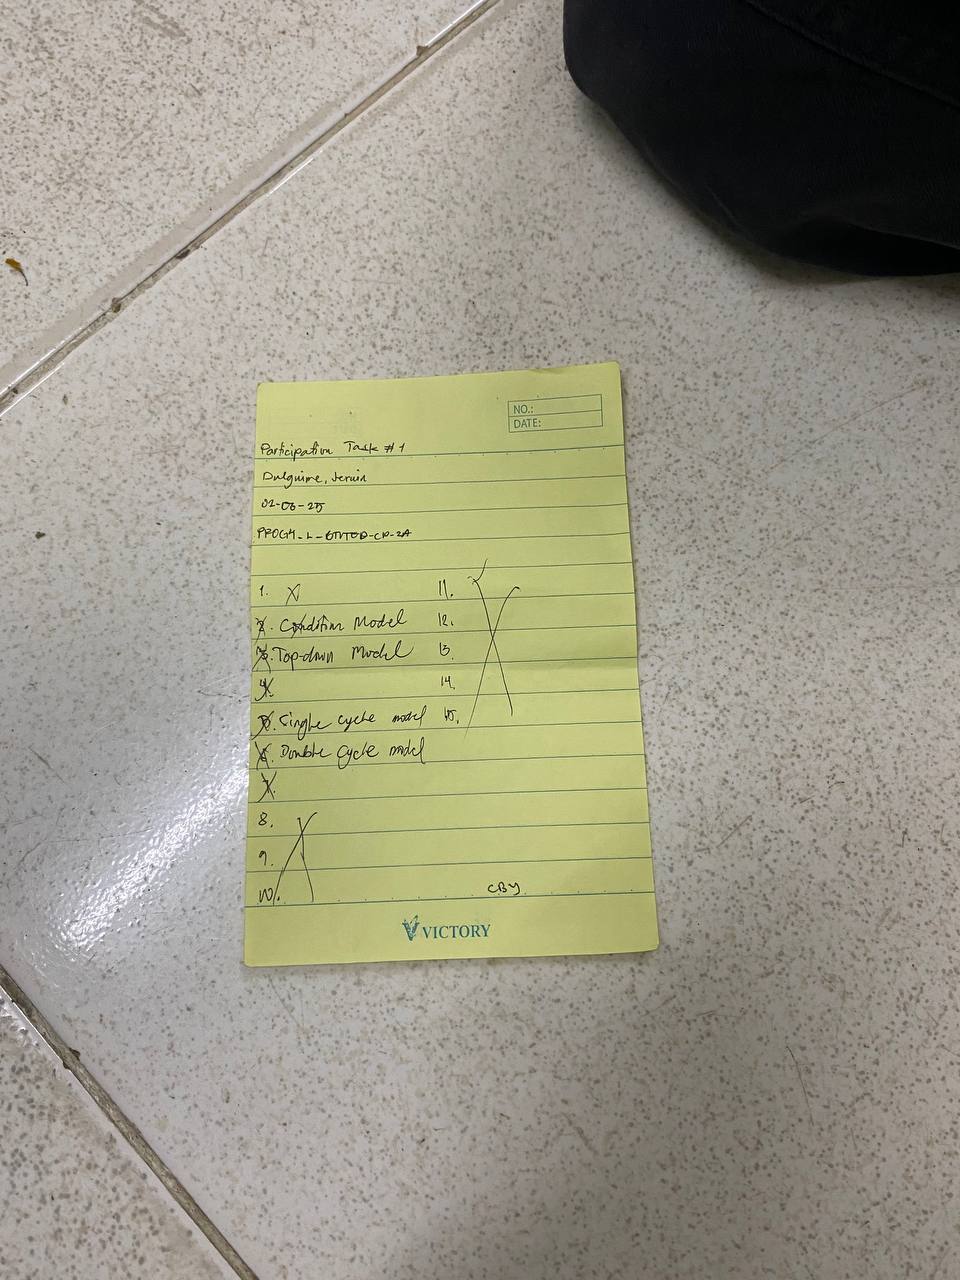 NO.:
DATE:
Participation Task #1
Dulguime, Jervin
02-03-25
1. X
2. Condition Model
3. Top-down Model
4.
5. Single cycle model
6. Double cycle model
7.
8.
9.
10.
11.
12.
13.
14.
15.
CBY
VICTORY